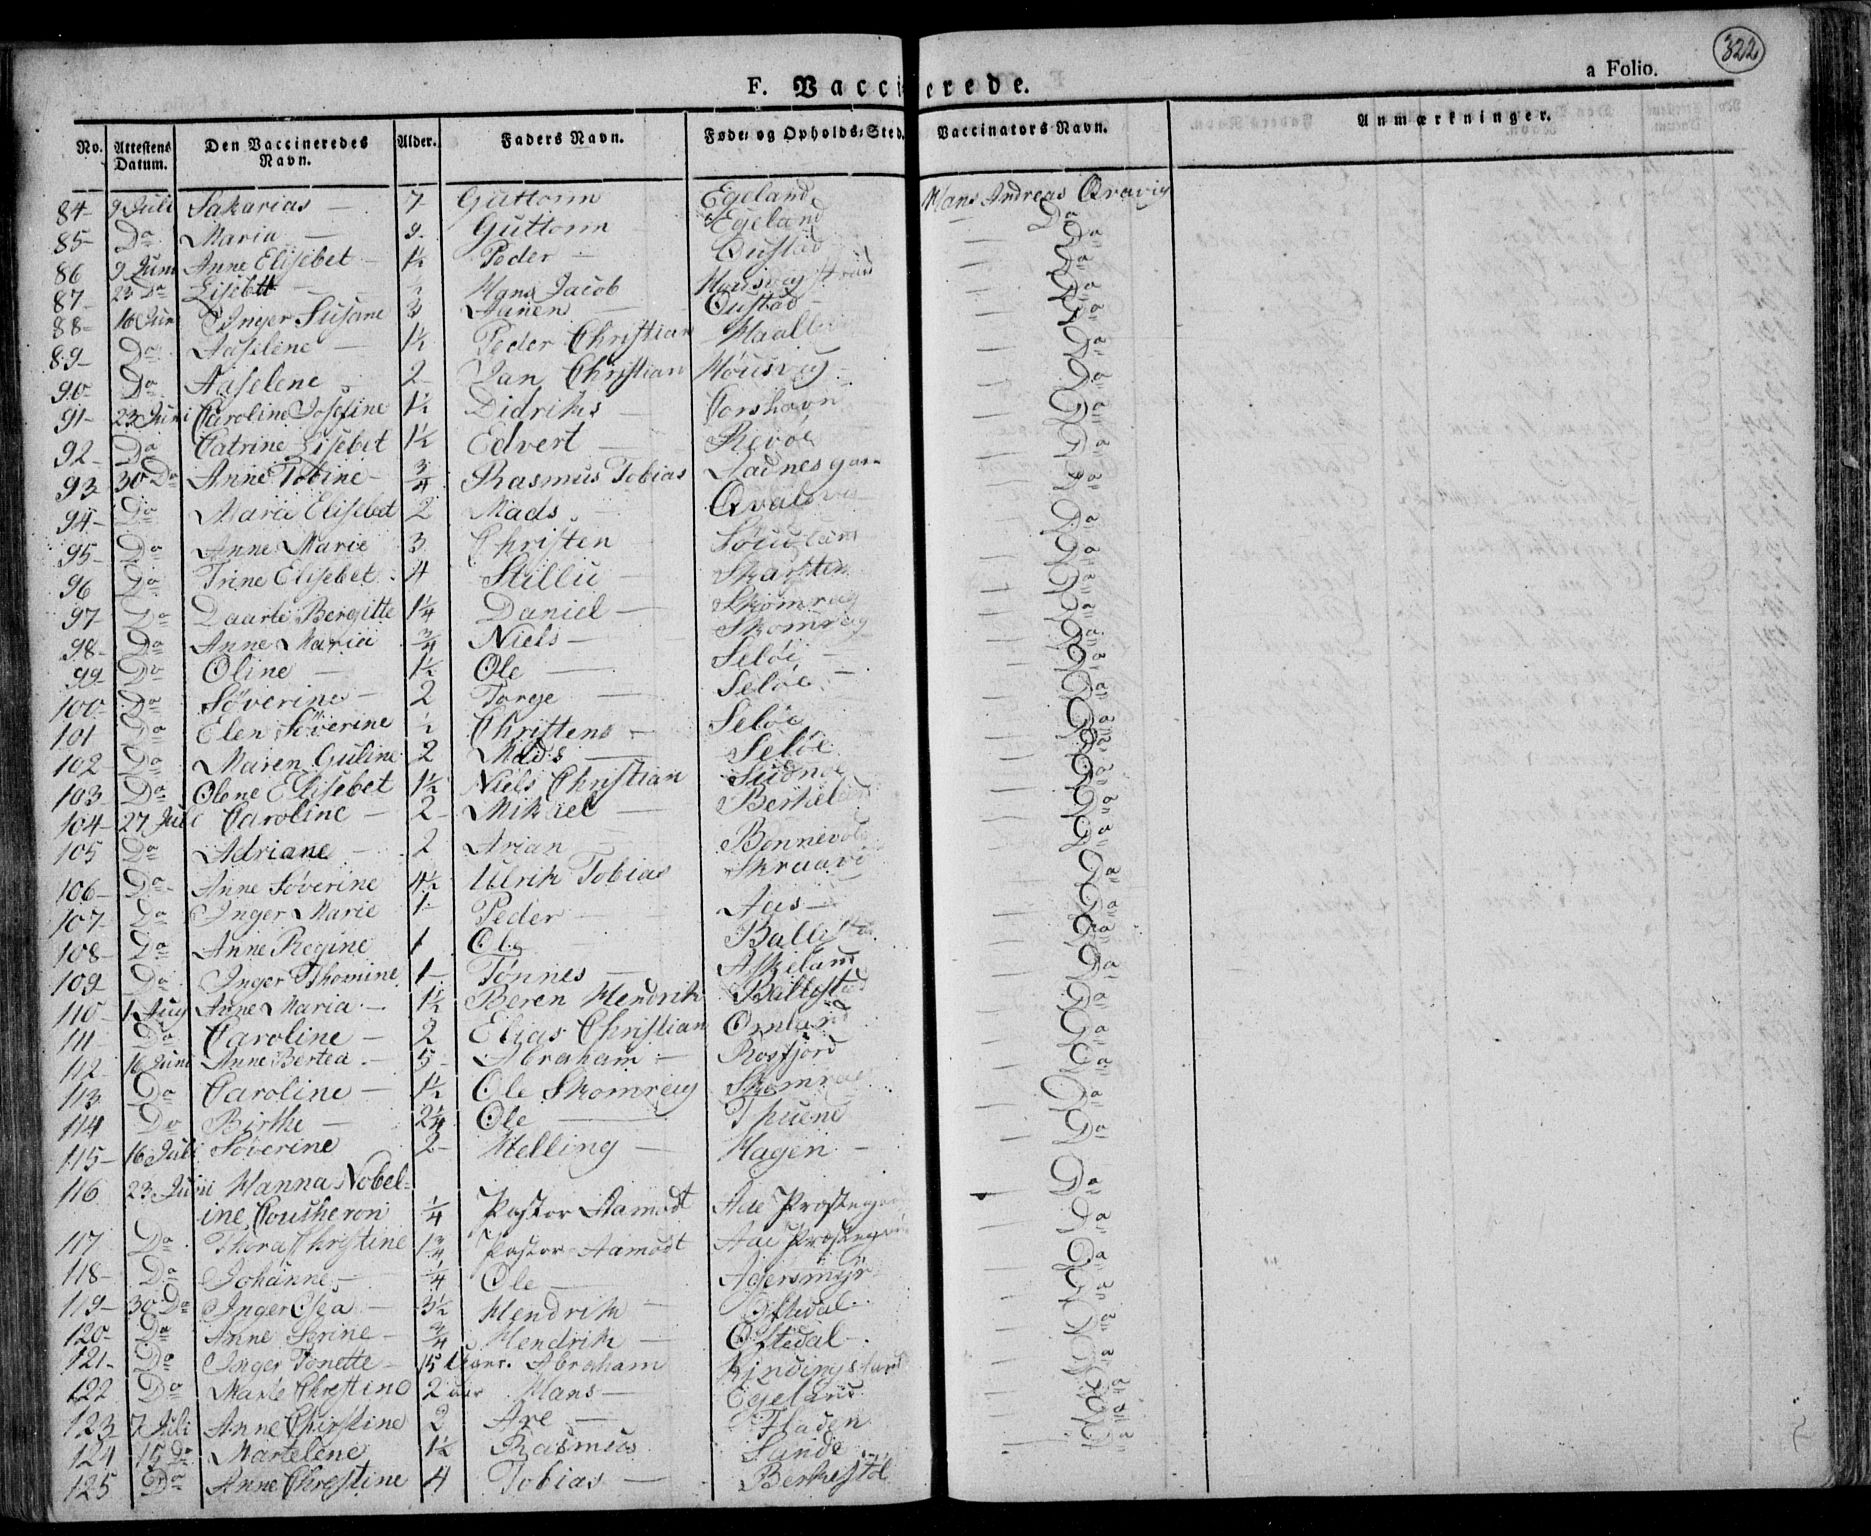 322
a Folio.
F. Vaccinerede.
No. Attestens Datum. Den Vaccineredes Navn. Alder. Faders Navn. Føde- og Opholds-Sted. Vaccinators Navn. Anmærkninger.
84 9 Juli Sakarias 7 Guttorm Egeland Hans Andreas Qvavig
85 Do Maria 9 Guttorm Egeland Do
86 9 Juni Anne Elisebet 1½ Peder Do
87 23 Do Lisebtt Hans Jacob Do
88 16 Juni Inger Susane 3 Do
89 Do Aaselene 1½ Peder Christian Do
90 Do Aaselene 2 Jan Christian Housvig Do
91 23 Juni Caroline Josefine 1½ Didriks Corshavn Do
92 Do Catrine Lisebet 1½ Edvert Revøe Do
93 30 Do Anne Tobine ¾ Rasmus Tobias Do
94 Do Maria Elisebet 2 Mads Do
95 Do Anne Marie 3 Christen Do
96 Do Trine Elisebet 4 Skarsten Do
97 Do Daarte Bergitte 1¼ Daniel Skomrag Do
98 Do Anne Maria ¾ Niels Skomrag Do
99 Do Oline 1½ Ole Seløi Do
100 Do Søverine 2 Torge Seløe Do
101 Do Elen Søverine ½ Christens Seløe Do
102 Do Maren Guline 2 Mads Seløe Do
103 Do Olene Elisebet 1½ Niels Christian Do
104 27 Juli Caroline 2 Mikael Do
105 Do Adriane 2 Arian Do
106 Do Anne Søverine 4½ Ulrik Tobias Do
107 Do Inger Marie 1 Peder Aas Do
108 Do Anne Regine 1 Ole Do
109 Do Inger Thomine 1 Tønnes Askeland Do
110 1 Aug Anne Maria 1½ Beren Hendrik Ballestad Do
111 Do Caroline 2 Elias Christian Omland Do
112 16 Juni Anne Bertea 5 Abraham Rosfjord Do
113 Do Caroline 1½ Ole Skomrag Skomrag Do
114 Do Birthe 2¼ Ole Do
115 16 Juli Søverine 2 Helling Hagen Do
116 23 Juni Hanna Nobel-
ine Coucheron ¼ Pastor Aamodt Aae Præstegaard Do
117 Do Thora Christine 1¾ Pastor Aamodt Aae Præstegaard Do
118 Do Johanne ¼ Ole Agersmyr Do
119 30 Do Inger Osea 3½ Hendrik Oftedal Do
120 Do Anne Serine ¾ Hendrik Oftedal Do
121 Do Inger Tonette 15 Abraham Do
122 Do Marte Chrestine 2 aar Hans Egeland Do
123 7 Juli Anne Chirstine 2 Are Fladen Do
124 15 Do Martelene 1½ Rasmus Sande Do
125 Do Anne Chrestine 4 Tobias Do